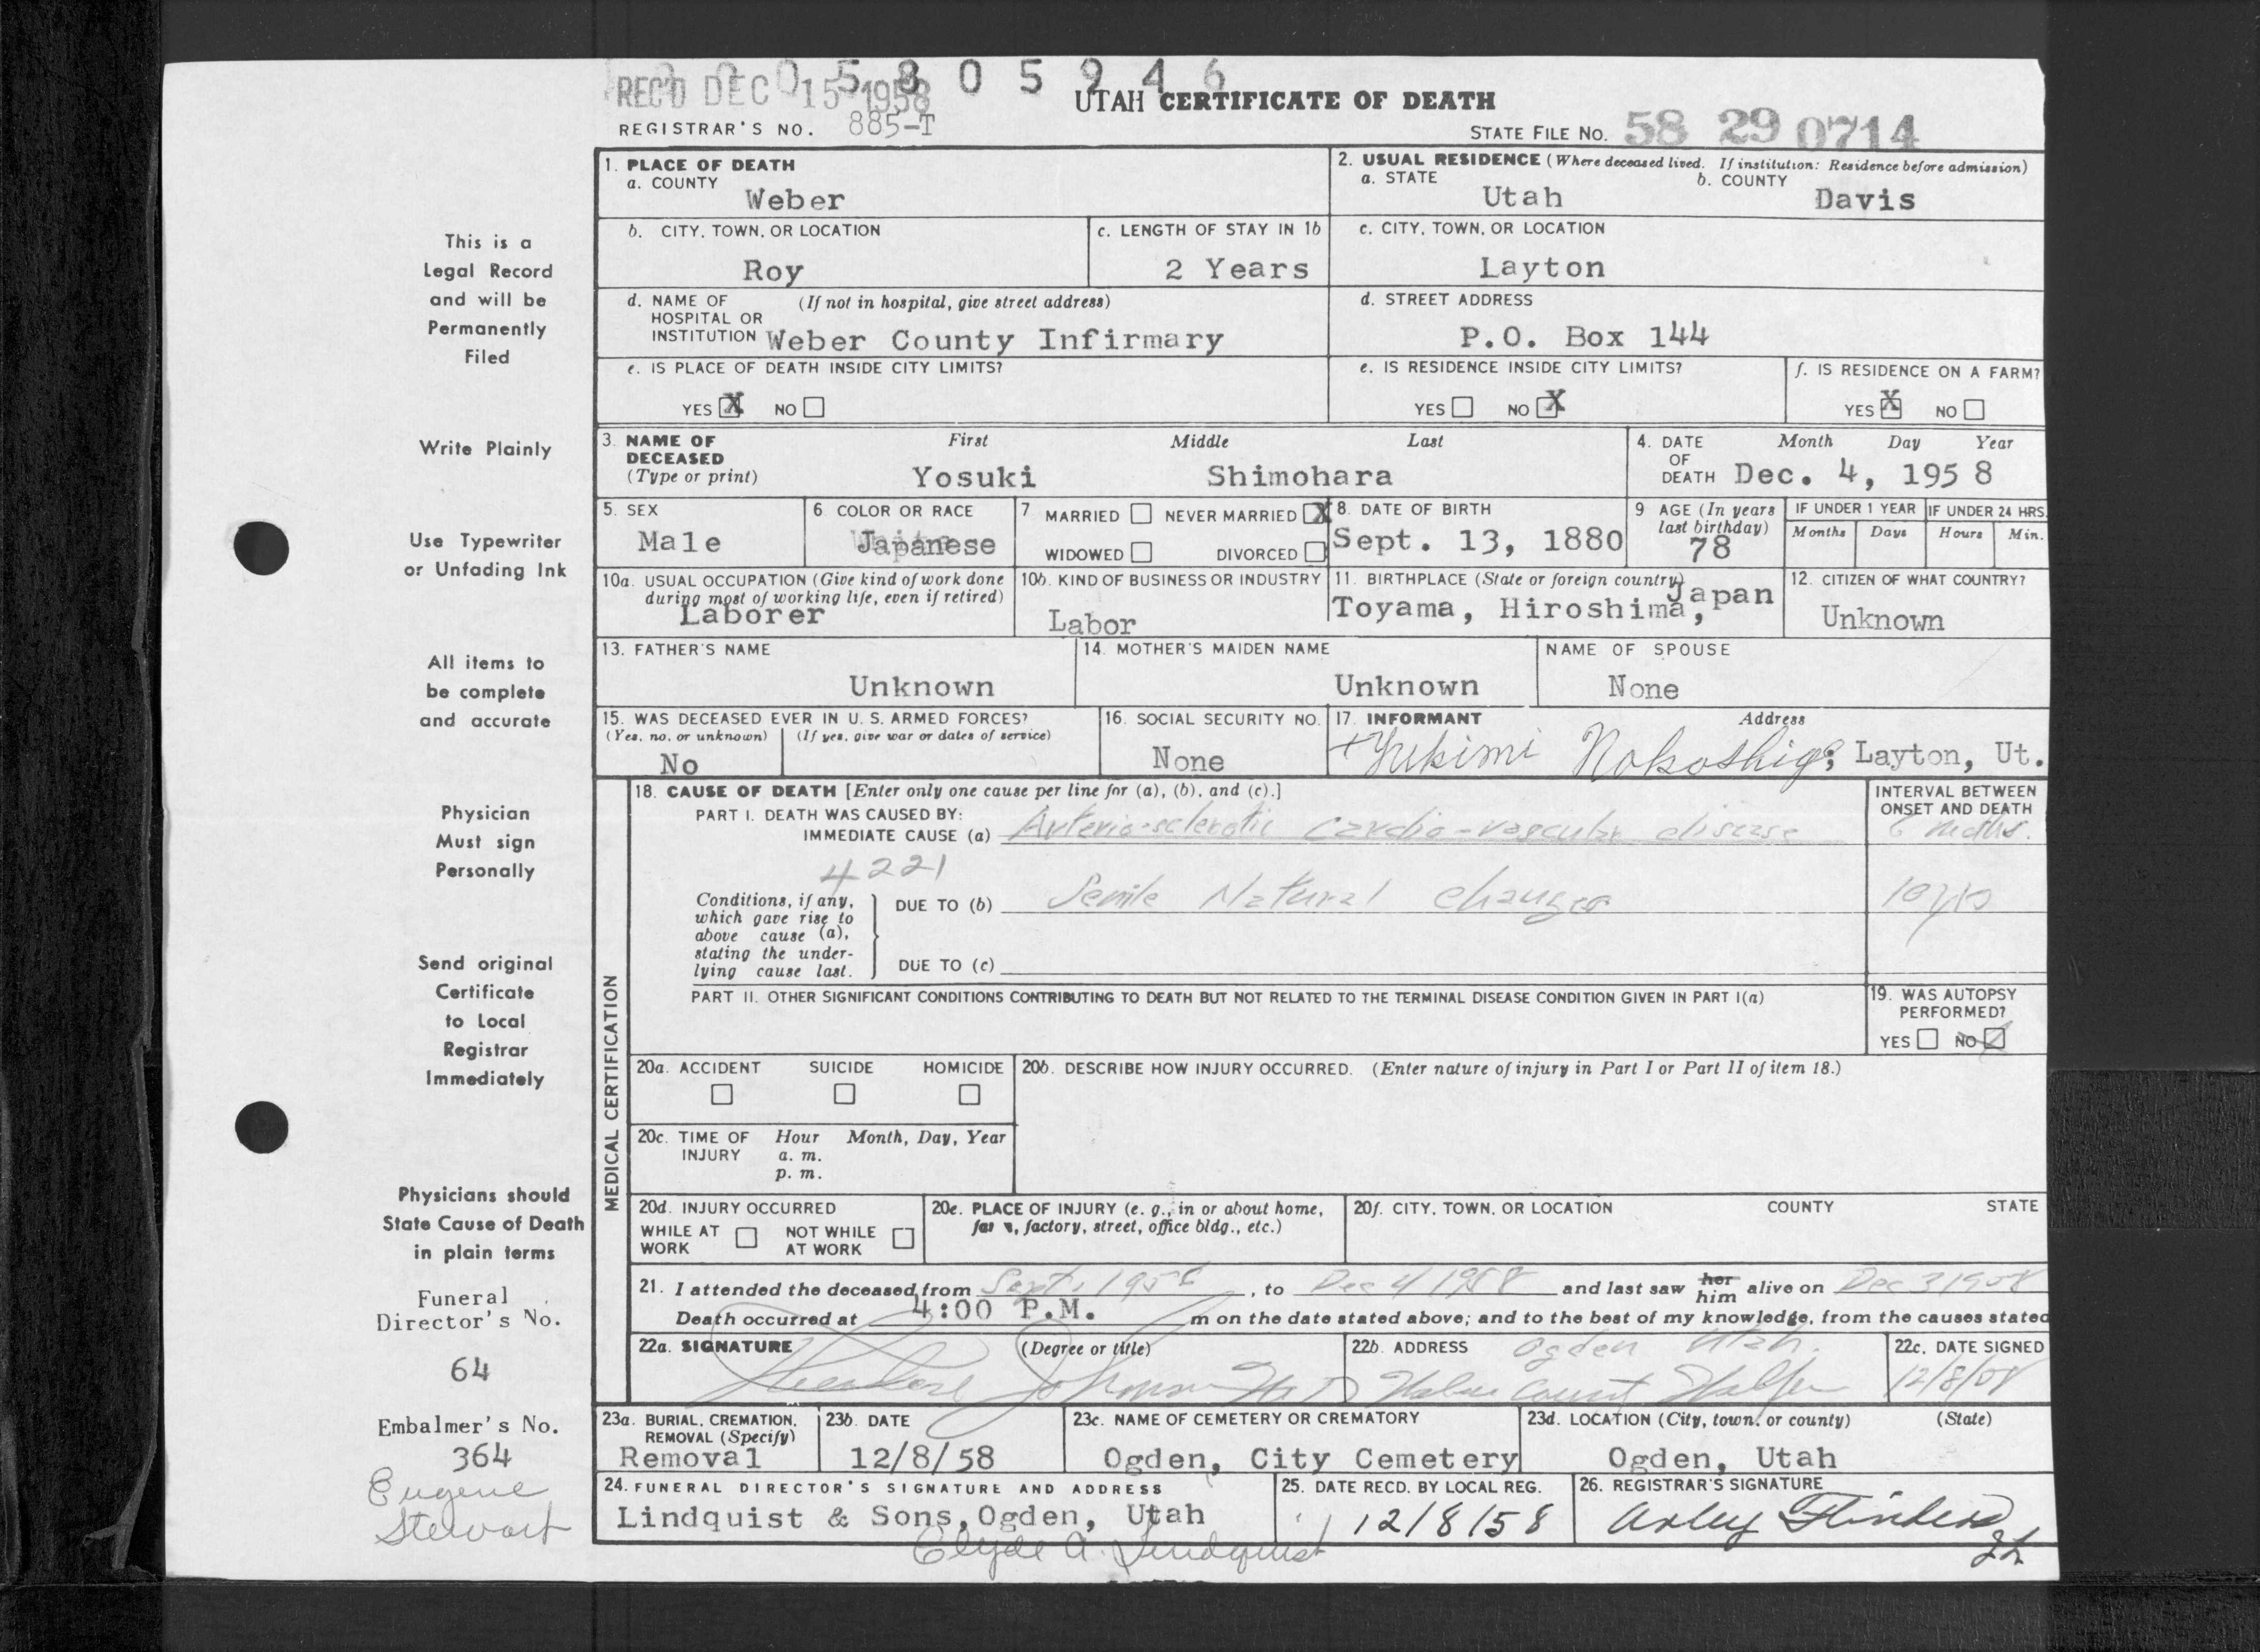 0 5 8 0 5 9 4 6
REC'D DEC 15 1958
UTAH CERTIFICATE OF DEATH
REGISTRAR'S NO. 885-T
STATE FILE NO. 58 29 0714
1. PLACE OF DEATH
a. COUNTY
Weber
2. USUAL RESIDENCE (Where deceased lived. If institution: Residence before admission)
a. STATE
Utah
b. COUNTY
Davis
b. CITY, TOWN, OR LOCATION
Roy
c. LENGTH OF STAY IN 1b
2 Years
c. CITY, TOWN, OR LOCATION
Layton
d. NAME OF HOSPITAL OR INSTITUTION (If not in hospital, give street address)
Weber County Infirmary
d. STREET ADDRESS
P.O. Box 144
e. IS PLACE OF DEATH INSIDE CITY LIMITS?
YES X NO
e. IS RESIDENCE INSIDE CITY LIMITS?
YES NO X
f. IS RESIDENCE ON A FARM?
YES X NO
3. NAME OF DECEASED (Type or print)
First Middle Last
Yosuki Shimohara
4. DATE OF DEATH
Month Day Year
Dec. 4, 195 8
5. SEX
Male
6 COLOR OR RACE
Japanese
7 MARRIED NEVER MARRIED X
WIDOWED DIVORCED
8. DATE OF BIRTH
Sept. 13, 1880
9 AGE (In years last birthday)
78
IF UNDER 1 YEAR
Months Days
IF UNDER 24 HRS.
Hours Min.
10a. USUAL OCCUPATION (Give kind of work done during most of working life, even if retired)
Laborer
10b. KIND OF BUSINESS OR INDUSTRY
Labor
11. BIRTHPLACE (State or foreign country)
Toyama, Hiroshima, Japan
12. CITIZEN OF WHAT COUNTRY?
Unknown
13. FATHER'S NAME
Unknown
14. MOTHER'S MAIDEN NAME
Unknown
NAME OF SPOUSE
None
15. WAS DECEASED EVER IN U. S. ARMED FORCES?
(Yes, no, or unknown) (If yes, give war or dates of service)
No
16. SOCIAL SECURITY NO.
None
17. INFORMANT Address
Yukimi ; Layton, Ut.
MEDICAL CERTIFICATION
18. CAUSE OF DEATH [Enter only one cause per line for (a), (b), and (c).]
INTERVAL BETWEEN ONSET AND DEATH
PART I. DEATH WAS CAUSED BY:
IMMEDIATE CAUSE (a) Arterio-sclerotic cardio-vascular disease
4221
Conditions, if any, which gave rise to above cause (a), stating the underlying cause last.
DUE TO (b) Senile Natural changes 10 yrs
DUE TO (c)
PART II. OTHER SIGNIFICANT CONDITIONS CONTRIBUTING TO DEATH BUT NOT RELATED TO THE TERMINAL DISEASE CONDITION GIVEN IN PART I(a)
19. WAS AUTOPSY PERFORMED?
YES NO
20a. ACCIDENT SUICIDE HOMICIDE
20b. DESCRIBE HOW INJURY OCCURRED. (Enter nature of injury in Part I or Part II of item 18.)
20c. TIME OF INJURY
Hour Month, Day, Year
a. m.
p. m.
20d. INJURY OCCURRED
WHILE AT WORK NOT WHILE AT WORK
20e. PLACE OF INJURY (e. g., in or about home, farm, factory, street, office bldg., etc.)
20f. CITY, TOWN, OR LOCATION COUNTY STATE
21. I attended the deceased from Sept. , to Dec 4 1958 and last saw her him alive on Dec 3 1958
Death occurred at 4:00 P.M. m on the date stated above; and to the best of my knowledge, from the causes stated
22a. SIGNATURE (Degree or title)
Johnson MD
22b. ADDRESS
Ogden Utah.
22c. DATE SIGNED
12/8/58
23a. BURIAL, CREMATION, REMOVAL (Specify)
Removal
23b. DATE
12/8/58
23c. NAME OF CEMETERY OR CREMATORY
Ogden, City Cemetery
23d. LOCATION (City, town, or county) (State)
Ogden, Utah
24. FUNERAL DIRECTOR'S SIGNATURE AND ADDRESS
Lindquist & Sons, Ogden, Utah
Clyde A. Lindquist
25. DATE RECD. BY LOCAL REG.
12/8/58
26. REGISTRAR'S SIGNATURE
Arley Flinders
This is a
Legal Record
and will be
Permanently
Filed
Write Plainly
Use Typewriter
or Unfading Ink
All items to
be complete
and accurate
Physician
Must sign
Personally
Send original
Certificate
to Local
Registrar
Immediately
Physicians should
State Cause of Death
in plain terms
Funeral
Director's No.
64
Embalmer's No.
364
Eugene
Stewart